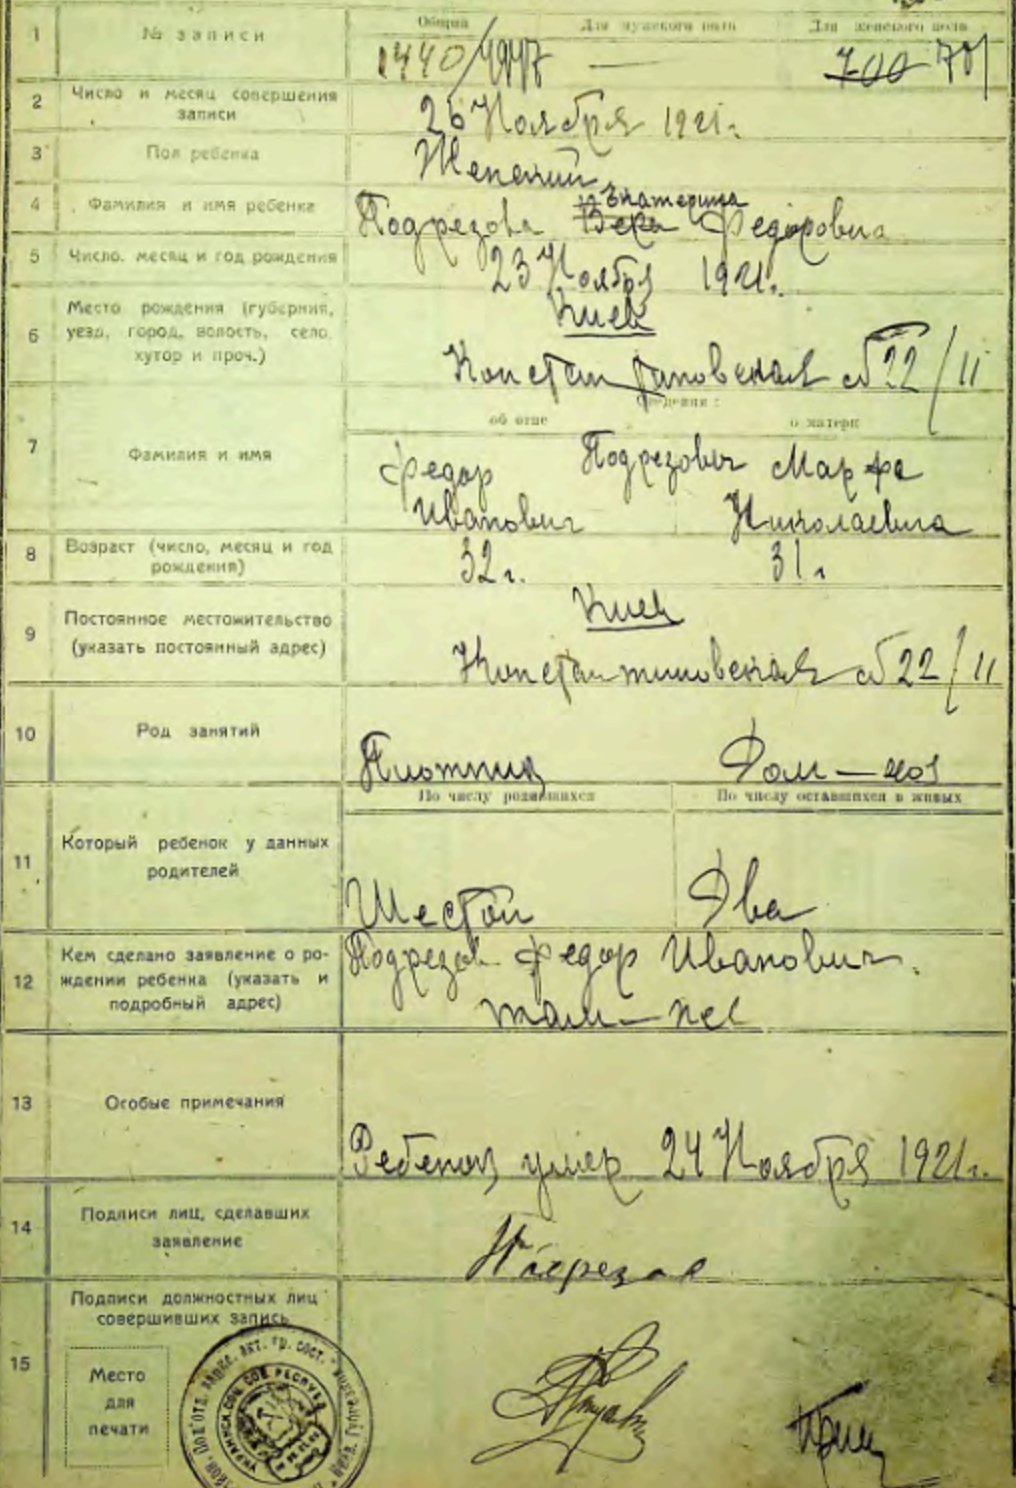 1 № записи Общий Для мужского пола Для женского пола
1440/4947 — 700 701
2 Число и месяц совершения
записи
26 Ноября 1921г.
3 Пол ребенка Женский
4 Фамилия и имя ребенка
Екатерина
Подрезова Вера Федоровна
5 Число, месяц и год рождения 23 Ноября 1921г.
6 Место рождения (губерния,
уезд, город, волость, село,
хутор и проч.)
Киев
Константиновская № 22/11
Сведения:
об отце о матери
7 Фамилия и имя
Федор Подрезович Марфа
Иванович Николаевна
8 Возраст (число, месяц и год
рождения)
32 г. 31 г
9 Постоянное местожительство
(указать постоянный адрес)
Киев
Константиновская № 22/11
10 Род занятий
Плотник Дом—хоз
По числу родившихся По числу оставшихся в живых
11 Который ребенок у данных
родителей
Шестой Два
12 Кем сделано заявление о ро-
ждении ребенка (указать и
подробный адрес)
Подрезов Федор Иванович.
там—же
13 Особые примечания
Ребенок умер 24 Ноября 1921г.
14 Подписи лиц, сделавших
заявление
15 Подписи должностных лиц
совершивших запись
Место
для
печати